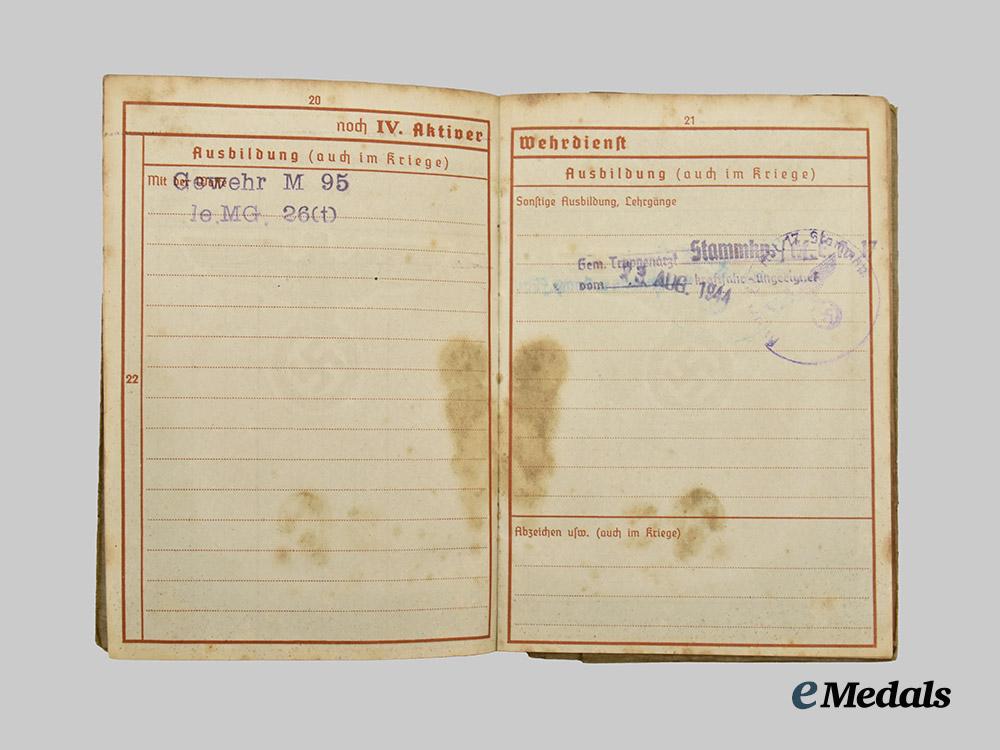 20
noch IV. Aktiver
Ausbildung (auch im Kriege)
Mit der Waffe
Gewehr M 95
le.MG. 26(t)
22
21
Wehrdienst
Ausbildung (auch im Kriege)
Sonstige Ausbildung, Lehrgänge
Stammkp.
17
Gem. Truppenarzt
vom 23. AUG. 1944
Abzeichen usw. (auch im Kriege)
eMedals